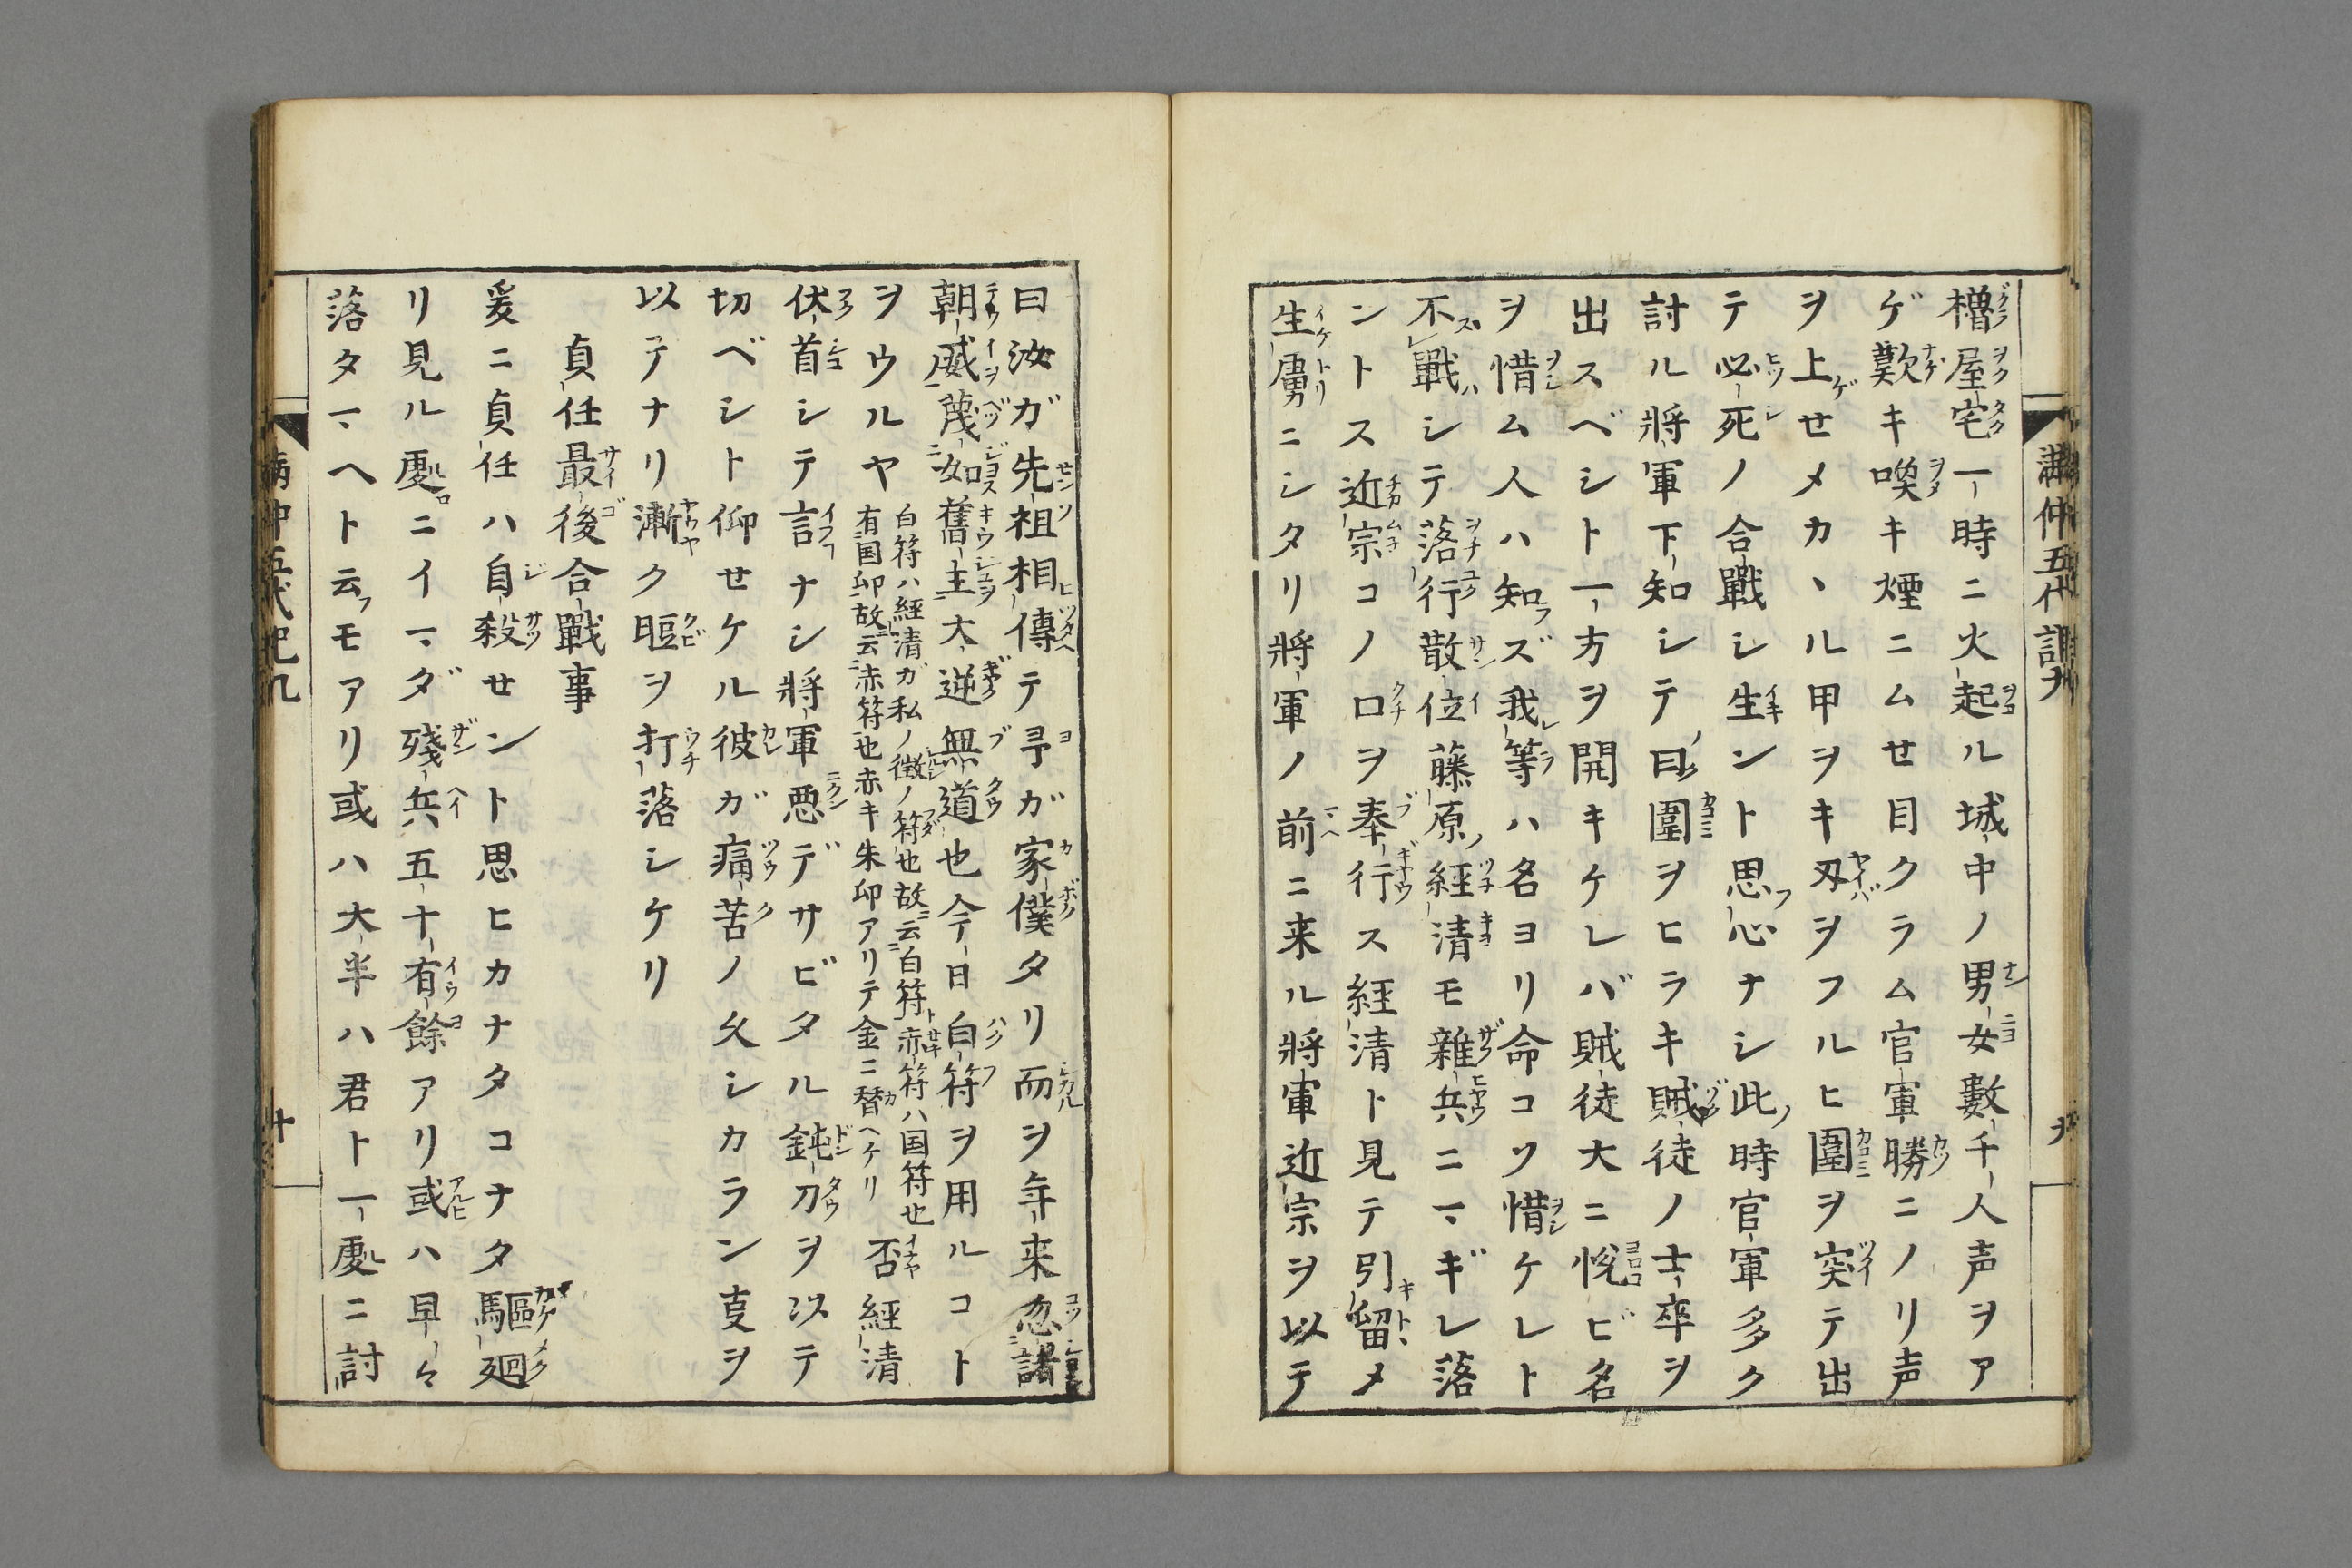 櫓屋宅一時ニ火起ル城中ノ男女數千人声ヲア
ゲ歎キ喚キ煙ニムセ目クラム官軍勝ニノリ声
ヲ上セメカヽル甲ヲキ刃ヲフルヒ圍ヲ突テ出
テ必死ノ合戰シ生ント思心ナシ此時官軍多ク
討ル將軍下知シテ曰圍ヲヒラキ賊徒ノ士卒ヲ
出スベシト一方ヲ開キケレバ賊徒大ニ悅ビ名
ヲ惜ム人ハ知ズ我等ハ名ヨリ命コソ惜ケレト
不戰シテ落行散位藤原経清モ雜兵ニマギレ落
ントス近宗コノ口ヲ奉行ス経清ト見テ引留メ
生虜ニシタリ將軍ノ前ニ来ル將軍近宗ヲ以テ
曰汝ガ先祖相傳テ予ガ家僕タリ而ヲ年来忽諸
朝威蔑如舊主大逆無道也今日白符ヲ用ルコト
ヲウルヤ
白符ハ経清ガ私ノ徴ノ符也故云白符赤符ハ国符也
有国印故云赤符也赤キ朱印アリテ金ニ替ヘケリ
否経清
伏首シテ言ナシ將軍悪デサビタル鈍刀ヲ以テ
切ベシト仰セケル彼ガ痛苦ノ久シカラン㕝ヲ
以テナリ漸ク頸ヲ打落シケリ
貞任最後合戰事
爰ニ貞任ハ自殺セント思ヒカナタコナタ駈廻
リ見ル處ニイマダ殘兵五十有餘アリ或ハ早々
落タマヘト云モアリ或ハ大半ハ君ト一處ニ討
満仲五代記九
十